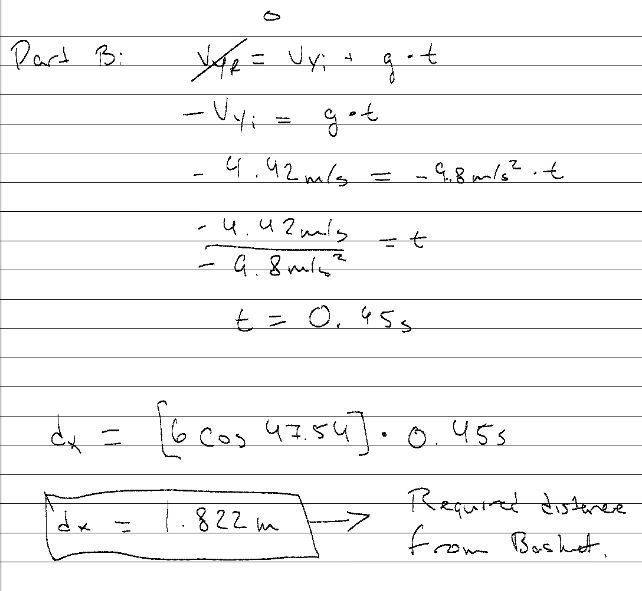 0
Part B: Vyf = Vyi + g·t
- Vyi = g·t
- 4.42 m/s = -9.8 m/s² · t
- 4.42 m/s
- 9.8 m/s²
= t
t = 0.45s
dx = [6 cos 47.54] · 0.45s
dx = 1.822 m → Required distance
from Basket.